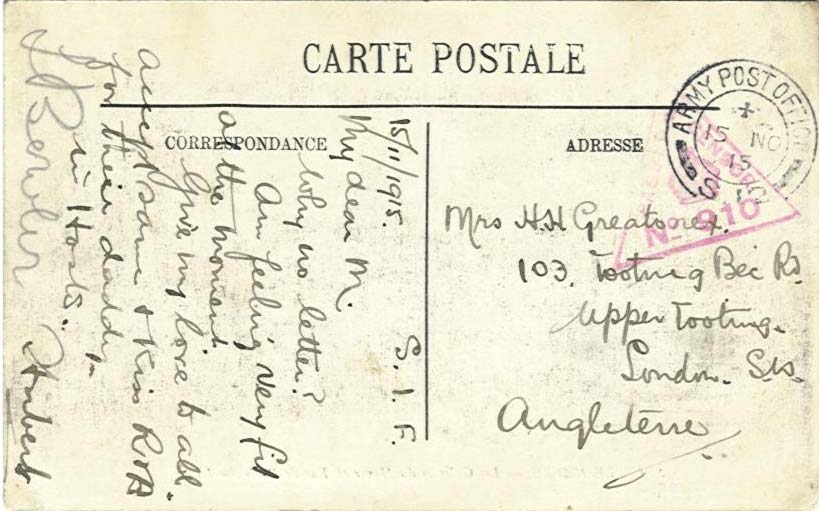 CARTE POSTALE
CORRESPONDANCE
ADRESSE
15/11/1915. S. I. F.
My dear M.
Why no letter?
Am feeling very fit
at the moment
Give my love to all.
accept same & kiss R & B
for their daddy.
in Haste.
Hubert
Mrs H.H Greatorex.
103, Tooting Bec Rd.
Upper Tooting.
London. S.W.
Angleterre
ARMY POST OFFICE
15 NO
15
S. 12
CENSOR
No 910